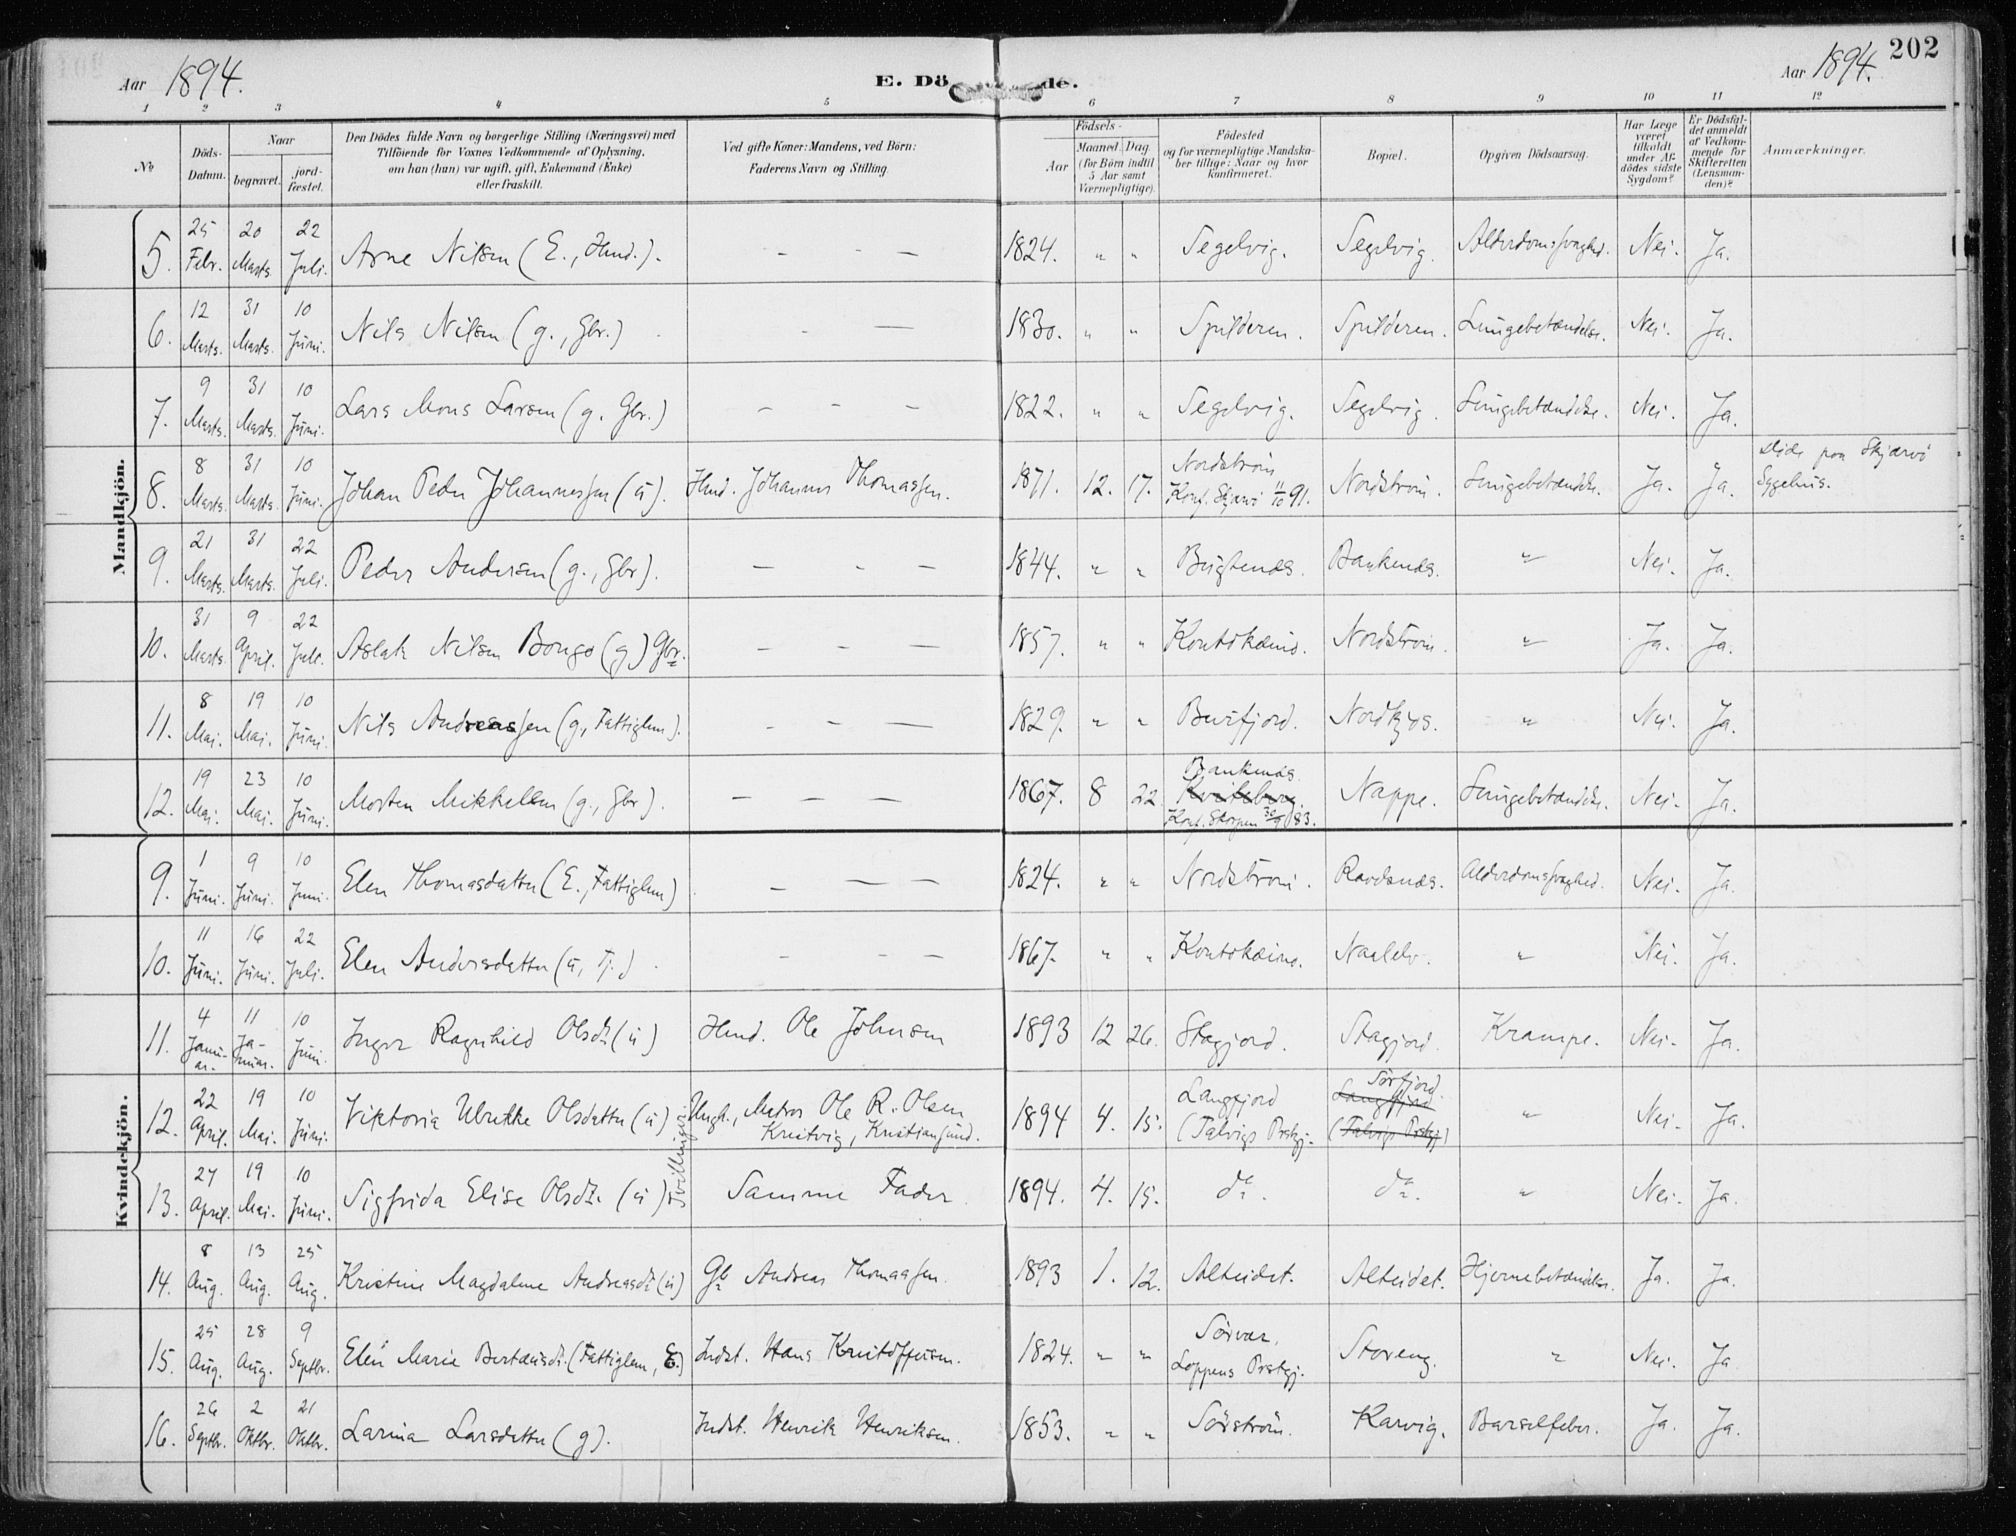 202
Aar 1894.
E. Dö de.
Aar 1894.
1 2 3 4 5 6 7 8 9 10 11 12
No
Döds-Datum.
Naar
begravet.
jord-fæstet.
Den Dödes fulde Navn og borgerlige Stilling (Næringsvei) med
Tilföiende for Voxnes Vedkommende af Oplysning,
om han (hun) var ugift, gift, Enkemand (Enke)
eller fraskilt.
Ved gifte Koner: Mandens, ved Börn:
Faderens Navn og Stilling.
Födsels-
Aar
Maaned. Dag.
(for Börn indtil
5 Aar samt
Værnepligtige).
Födested
og for værnepligtige Mandska-
ber tillige: Naar og hvor
konfirmeret.
Bopæl.
Opgiven Dödsaarsag.
Har Læge
været
tilkaldt
under Af-
dödes sidste
Sygdom?
Er Dödsfal-
det anmeldt
af Vedkom-
mende for
Skifteretten
(Lensman-
den)?
Anmærkninger.
Mandkjön.
5. 25 Febr. 20 Marts. 22 Juli. Arne Nilsen (E., Hmd.). - - - 1824. " " Segelvig. Segelvig. Alderdomssvaghed. Nei. Ja.
6. 12 Marts. 31 Marts. 10 Juni. Nils Nilsen (g., Gbr.) - — 1830. " " Spilderen. Spilderen. Lungebetændelse. Nei. Ja.
7. 9 Marts. 31 Marts. 10 Juni. Lars Mons Larsen (g. Gbr.) - - - 1822. " " Segelvig. Segelvig. Lungebetændelse. Nei. Ja.
8. 8 Marts. 31 Marts. 10 Juni. Johan Peder Johannessen (ú). Hmd. Johannes Thomassen. 1871. 12. 17. Nordström Konf. Skjærvö 11/10 91. Nordström. Lungebetændelse. Ja. Ja. Döde paa Skjærvö Sygehus.
9. 21 Marts. 31 Marts. 22 Juli. Peder Andersen (g., Gbr). — - — 1844. " " Bugtenæs. Bankenæs. " Nei. Ja.
10. 31 Marts. 9 April. 22 Juli. Aslak Nilsen Bongo (g) Gbr. - - - 1857. " " Koutokæino. Nordström. " Ja. Ja.
11. 8 Mai. 19 Mai. 10 Juni. Nils Andreassen (g., Fattiglem). - - — 1829. " " Burfjord. Nordkjos. " Nei. Ja.
12. 19 Mai. 23 Mai. 10 Juni. Morten Mikkelsen (g., Gbr). — — — 1867. 8 22 Bankenæs. Kviteberg. Konf. Skorpen 30/9 83. Nappe. Lungebetændelse. Nei. Ja.
Kvindekjön.
9. 1 Juni. 9 Juni. 10 Juni. Elen Thomasdatter (E., Fattiglem) — — — 1824. " " Nordström. Ravelsnæs. Alderdomssvaghed. Nei. Ja.
10. 11 Juni. 16 Juni. 22 Juli. Elen Andersdatter (ú, Tj.) - - - 1867. " " Koutokæino. Naalelv. " Nei. Ja.
11. 4 Januar. 11 Januar. 10 Juni. Inger Ragnhild Olsdt. (ú) Hmd. Ole Johnsen 1893 12 26. Stagjord. Stagjord. Krampe. Nei. Ja.
12. 22 April. 19 Mai. 10 Juni. Viktoria Ulrikke Olsdatter (ú) Tvillinger. Ungk., Matros Ole R. Olsen Kristvig, Kristiansund. 1894 4. 15. Langfjord (Talvigs Prstgj. Sörfjord. Langfjord (Talvigs Prstgj) " Nei. Ja.
13. 27 April. 19 Mai. 10 Juni. Sigfrida Elise Olsdt. (ú) Samme Fader. 1894. 4. 15. do. do. " Nei. Ja.
14. 8 Aug. 13 Aug. 25 Aug. Kristine Magdalene Andreasdt. (ú) Gb. Andreas Thomassen. 1893 1. 12. Alteidet. Alteidet. Hjernebetændelse. Ja. Ja.
15. 25 Aug. 28 Aug. 9 Septbr. Elen Marie Bertæusdt. (Fattiglem, E.) Indst. Hans Kristoffersen. 1824. " " Sörvær, Loppens Prstgj. Storeng. " Nei. Ja
16. 26 Septbr. 2 Oktbr. 21 Oktbr. Larina Larsdatter (g). Indst. Henrik Henriksen. 1853. " " Sörström. Karvig. Barselfeber. Ja. Ja.